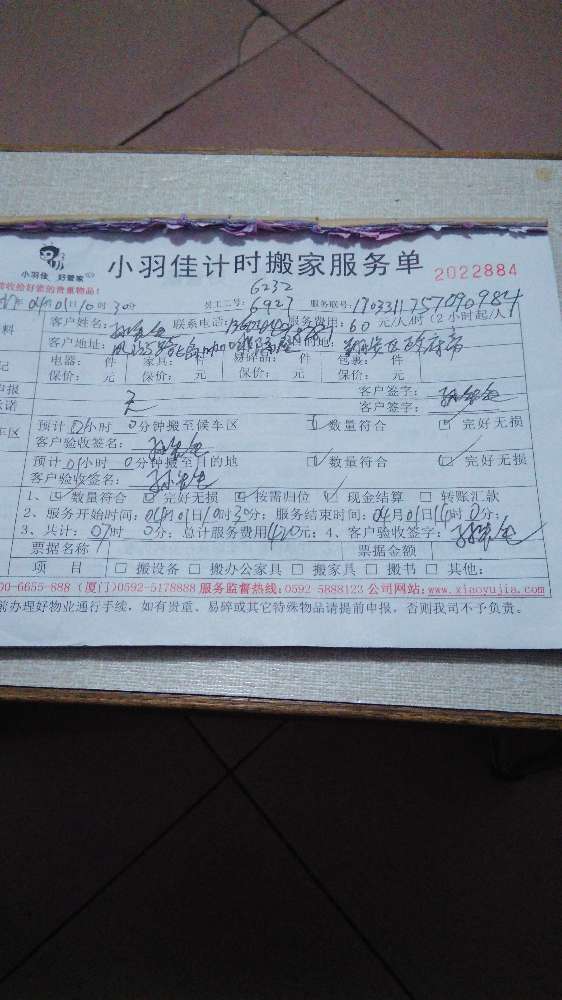 小羽佳 好管家
小羽佳计时搬家服务单
2022884
验收给好紧的贵重物品!
6232
04月01日10时30分 员工工号: 6927 服务联号: 1703311757090984
料 客户姓名: 联系电话: 服务费用: 60元/人/时 (2小时起/人)
客户地址: 目的地:
电器: 件 家具: 件 易碎品: 件 包裹: 件
记 保价: 元 保价: 元 保价: 元 保价: 元
申报 无 客户签字:
承诺 客户签字:
车区 预计01小时0分钟搬至候车区 数量符合 完好无损
客户验收签名:
预计01小时0分钟搬至目的地 数量符合 完好无损
客户验收签名:
1、数量符合 完好无损 按需归位 现金结算 转账汇款
2、服务开始时间: 04月01日10时30分; 服务结束时间: 04月01日14时0分;
3、共计: 07时0分; 总计服务费用420元; 4、客户验收签字:
票据名称 票据金额
项 目 搬设备 搬办公家具 搬家具 搬书 其他:
00-6655-888 (厦门)0592-5178888 服务监督热线:0592-5888123 公司网站:www.xiaoyujia.com
前办理好物业通行手续,如有贵重、易碎或其它特殊物品请提前申报,否则我司不予负责。